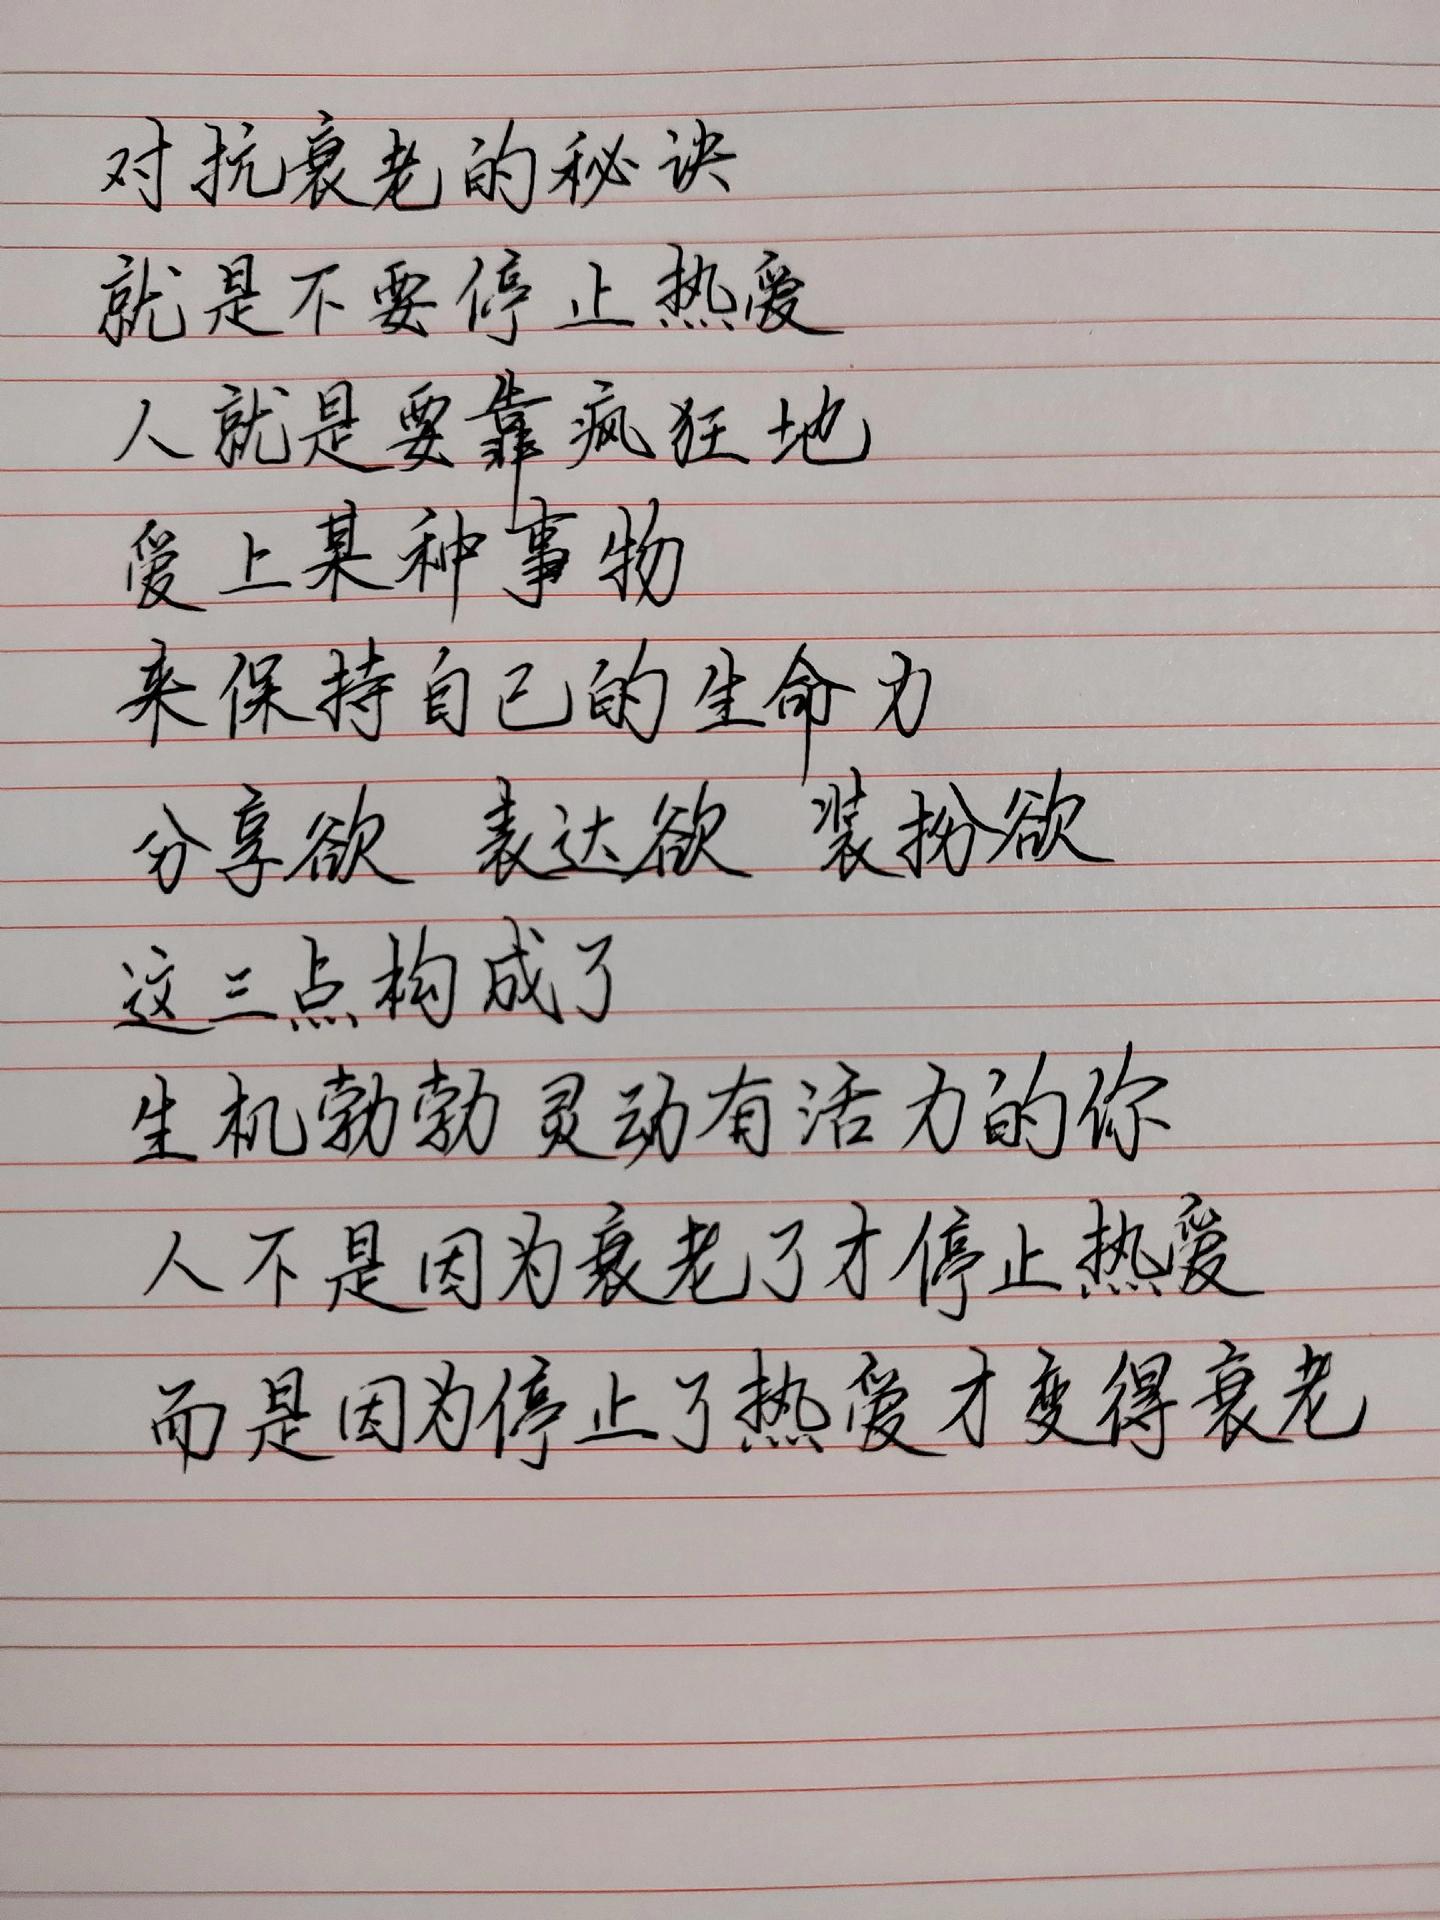 对抗衰老的秘诀
就是不要停止热爱
人就是要靠疯狂地
爱上某种事物
来保持自己的生命力
分享欲 表达欲 装扮欲
这三点构成了
生机勃勃灵动有活力的你
人不是因为衰老了才停止热爱
而是因为停止了热爱才变得衰老